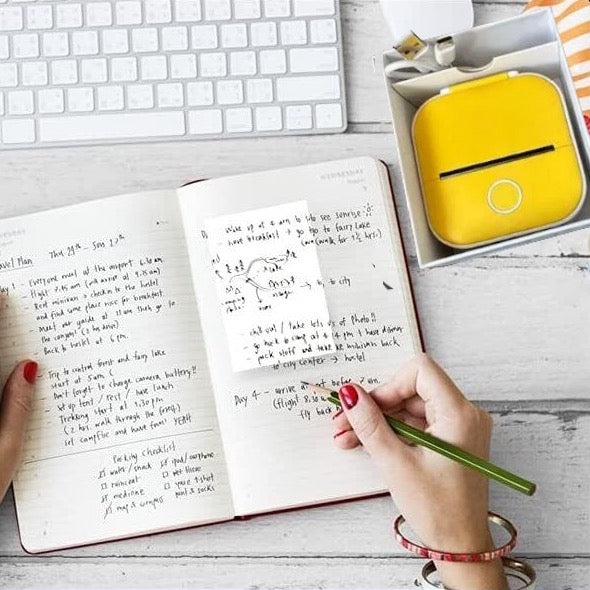 Travel Plan Thu 14th - Sun 17th
Day 1 - Everyone meet at the airport 6.30 am
- Flight 7.45 am (will arrive at 9.15 am)
- Rent minivan & check in to the hostel
and find some place nice for breakfast
- Meet our guide at 11 am then go to
the canyons! (2 hrs drive)
- Back to hostel at 6 pm.
- Trip to central forest and fairy lake
start at 5 am
- Don't forget to change camera battery!!
- Set up tent / rest / have lunch
- Trekking start at 4.30 pm
(2 hrs walk through the forest)
- Set campfire and have fun! YEAH
Packing Checklist
water/snack
ipad/earphone
raincoat
wet tissue
medicine
spare t-shirt
map & compass
pant & socks
WEDNESDAY
D
- wake up at 4 am to see sunrise
- have breakfast & go to fairy lake
(walk for 1 1/2 hrs.)
lake
to city
- chill out / take lots of Photo!!
- go back to camp at 4 pm & have dinner
- pack stuff and take minivan back
to city center → hostel
Day 4 - arrive before 7 am.
(flight 8.
fly back